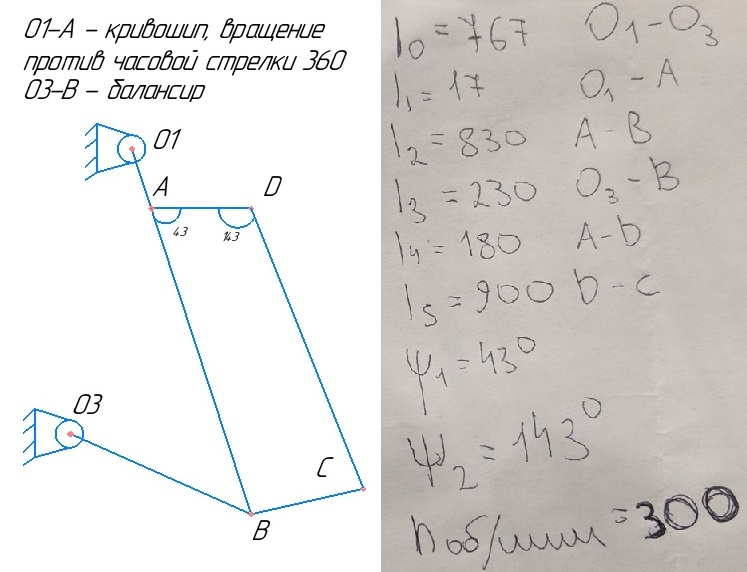 O1-A - кривошип, вращение
против часовой стрелки 360
O3-B - балансир
O1
A
D
43
143
O3
C
B
l0 = 767 O1-O3
l1 = 17 O1-A
l2 = 830 A-B
l3 = 230 O3-B
l4 = 180 A-b
l5 = 900 b-c
ψ1 = 43°
ψ2 = 143°
n об/мин = 300